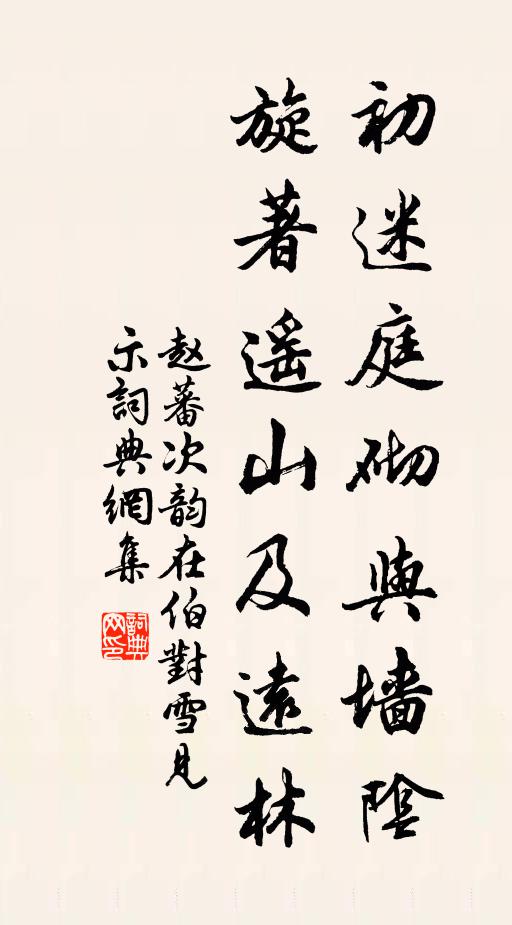 初迷庭砌與墙陰
旋著遥山及遠林
赵蕃次韵在伯對雪見
示詞典網集
詞典网印